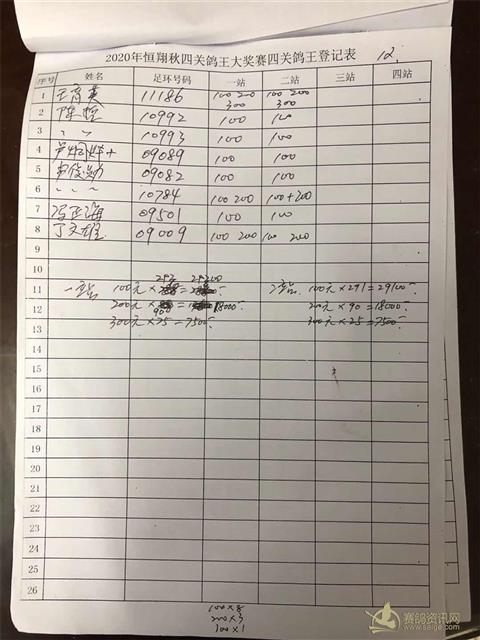 2020年恒翔秋四关鸽王大奖赛四关鸽王登记表 12.
序号 姓名 足环号码 一站 二站 三站 四站
1 王育英 11186 100 200 300 100 200 300
2 10992 100 100
3 〃 〃 10993 100 100
4 09089 100 100
5 09082 100 100
6 〃 〃 〃 10784 100 200 100+200
7 冯正海 09501 100 100
8 丁文雄 09009 100 200 100 200
9
10
292 29200
11 一站 100元× = 二站 100元×291=29100
12 200元× 90 = 18000 200元×90=18000
300元×25=7500 300元×25=7500
13
14
15
16
17
18
19
20
21
22
23
24
25
26
100×8
200×3
300×1
赛鸽资讯网
www.saige.com